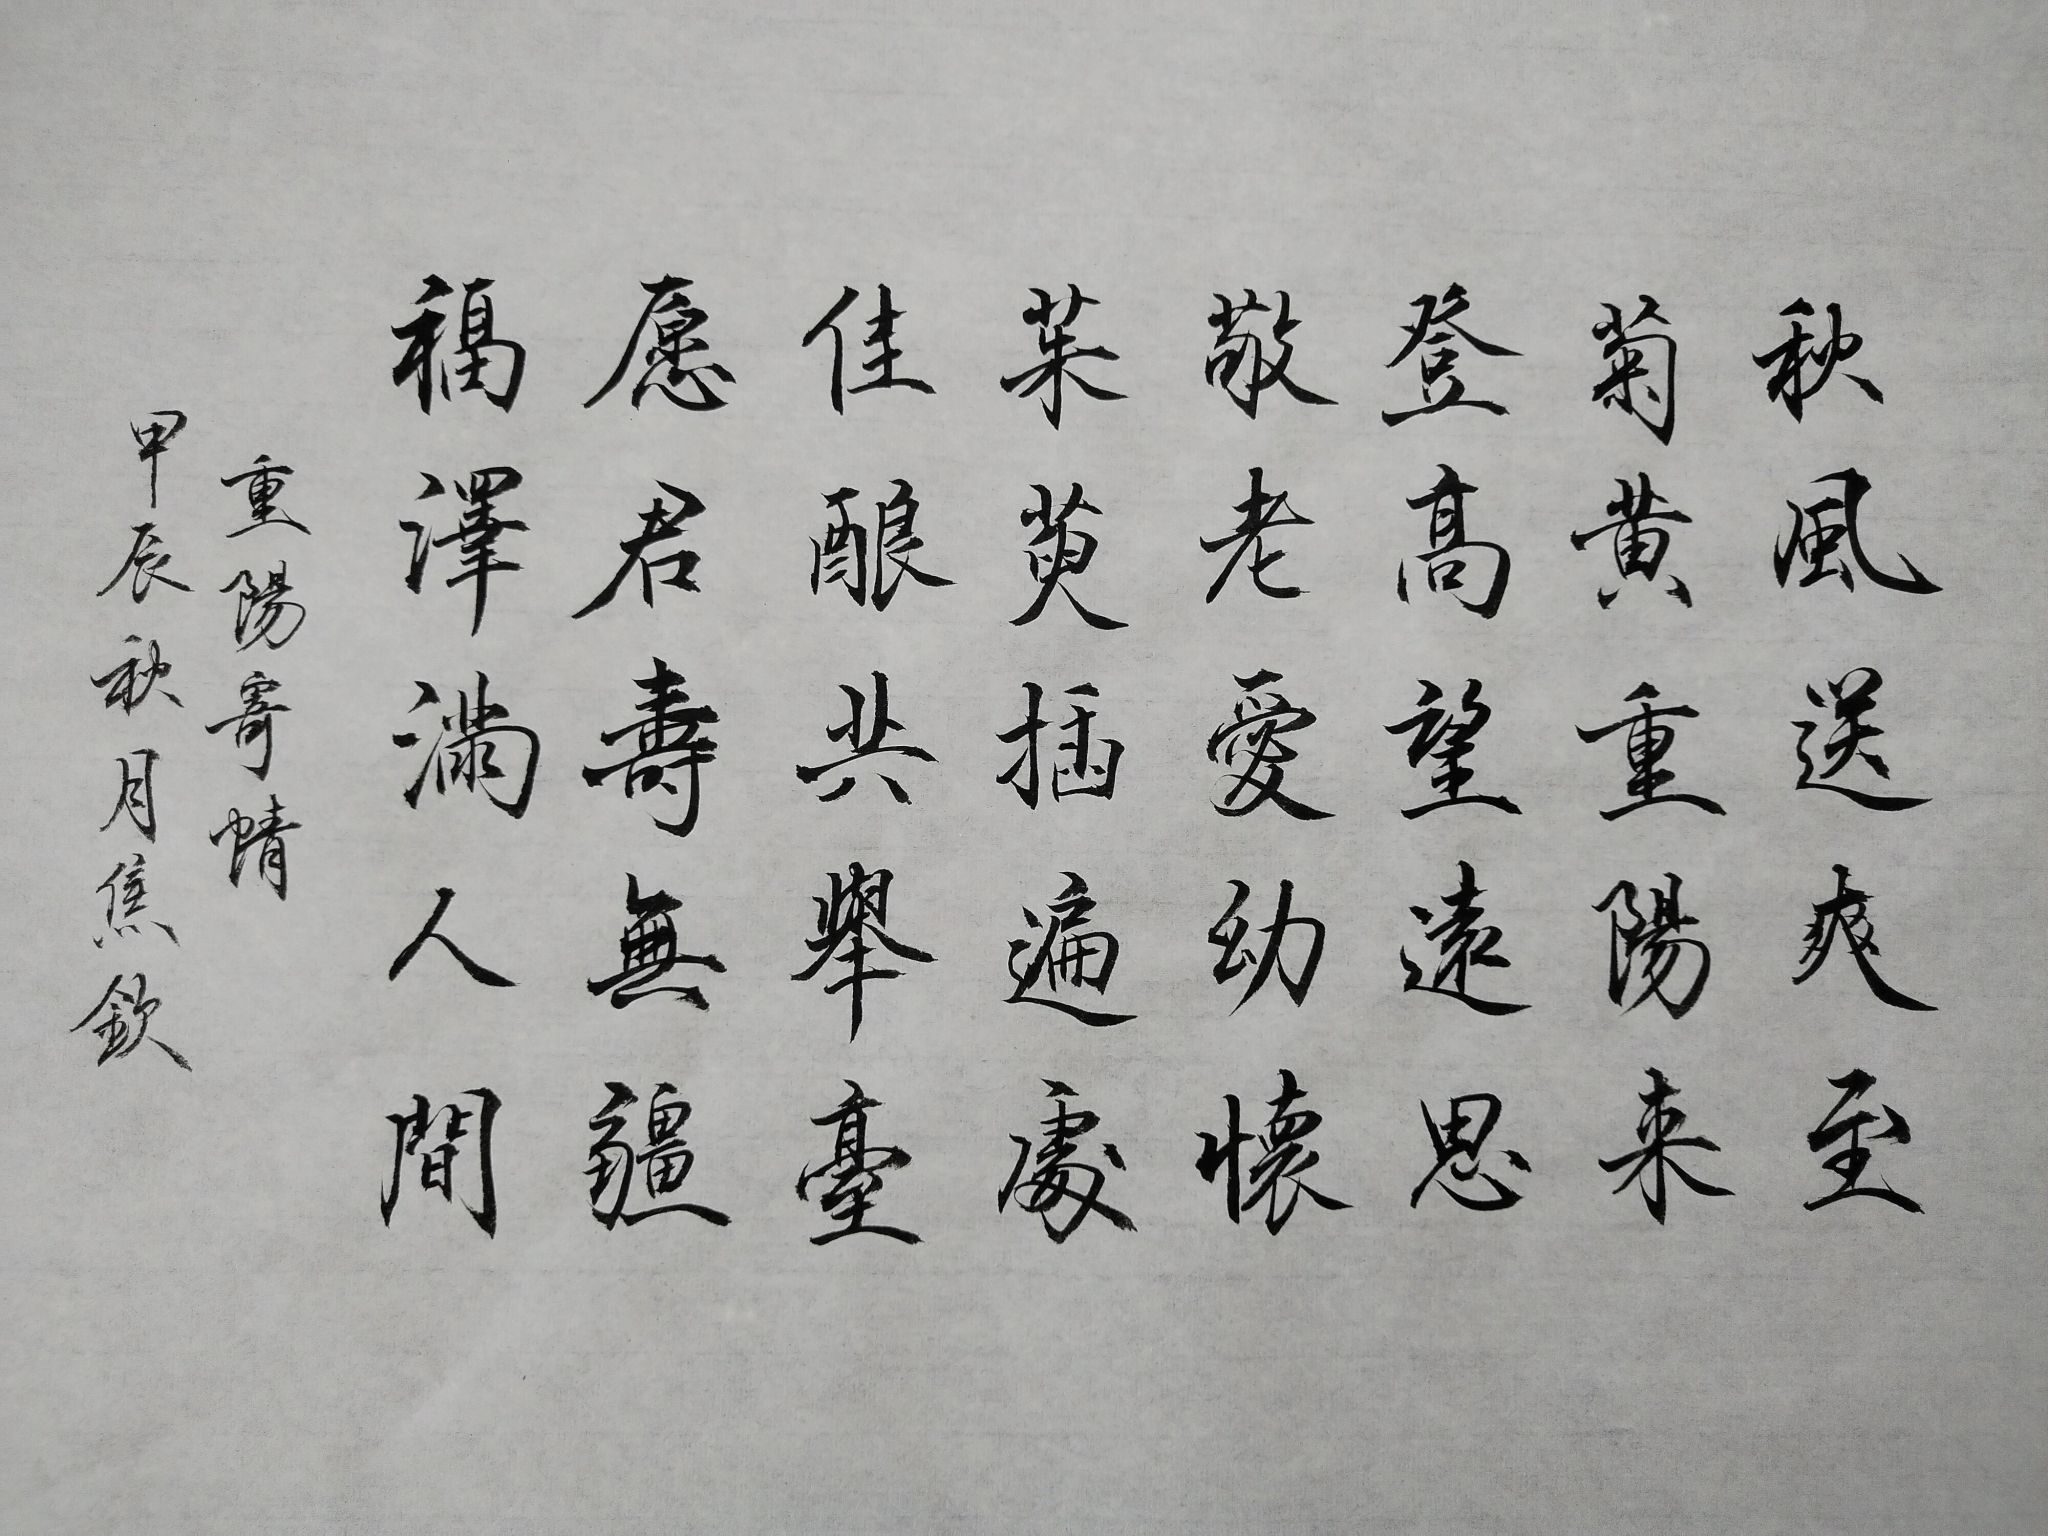 秋風送爽至
菊黄重陽来
登高望遠思
敬老愛幼懷
茱萸插遍處
佳酿共舉臺
愿君壽無疆
福澤滿人間
重陽寄情
甲辰秋月焦欽